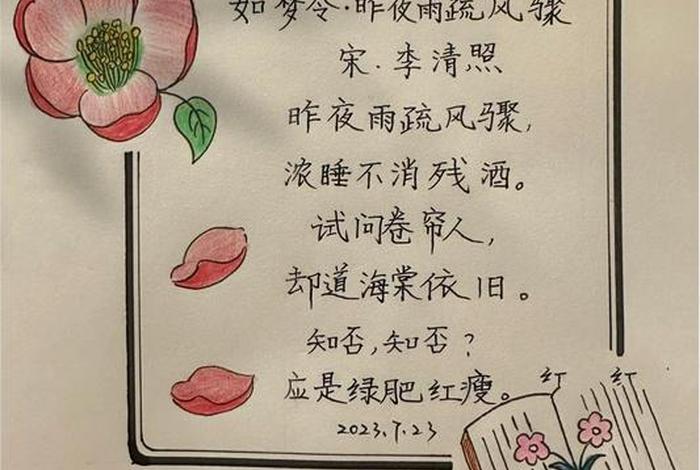 如梦令·昨夜雨疏风骤
宋.李清照
昨夜雨疏风骤,
浓睡不消残酒。
试问卷帘人,
却道海棠依旧。
知否,知否?
应是绿肥红瘦。
2023.7.23
红 红